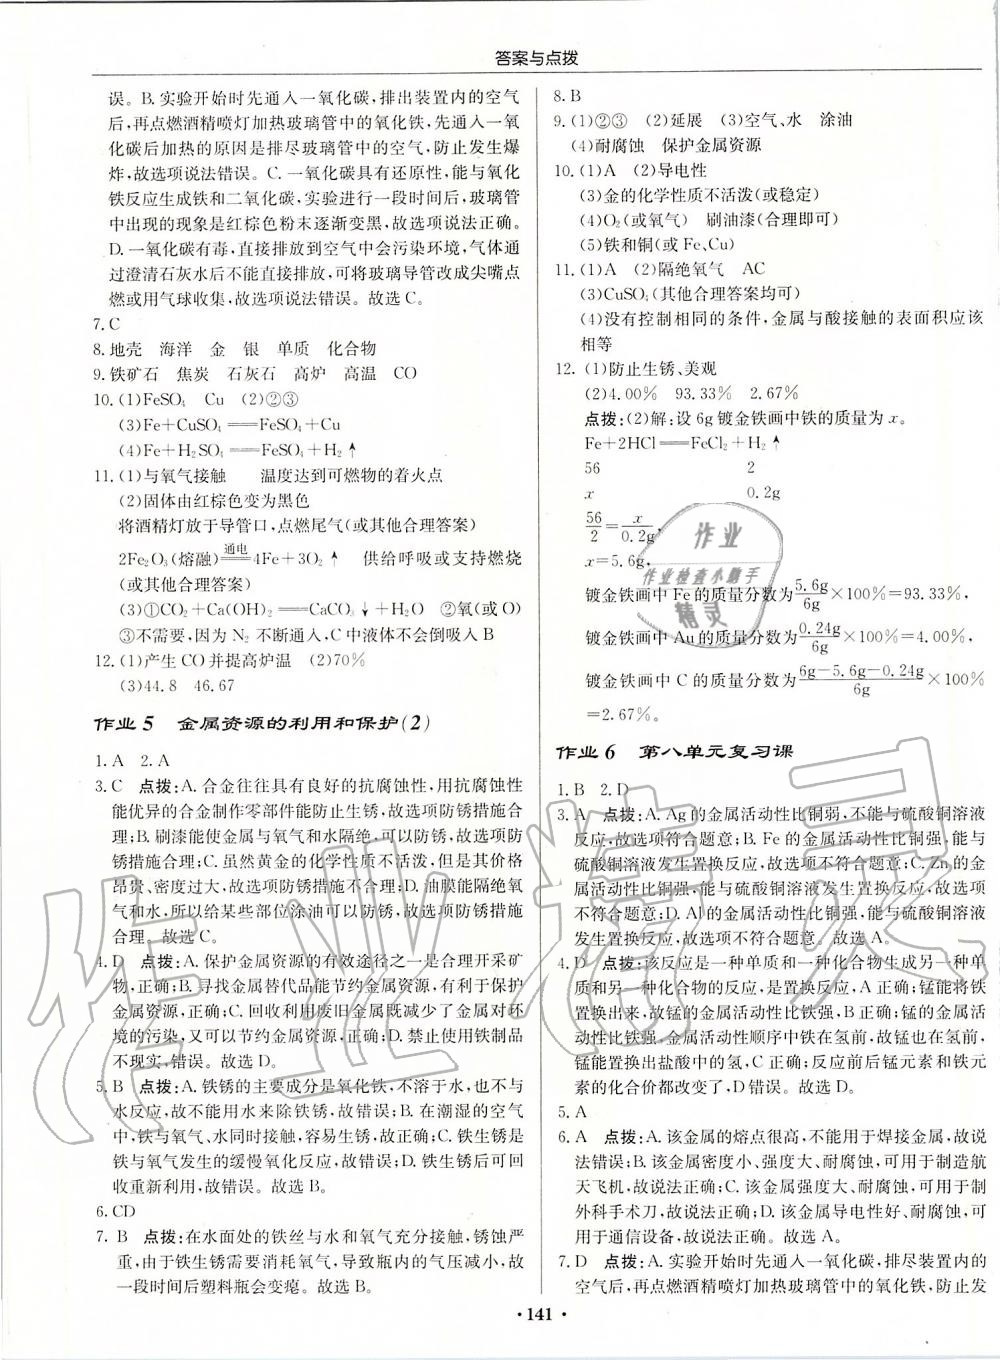 答案与点拨
误。B. 实验开始时先通入一氧化碳,排出装置内的空气
后,再点燃酒精喷灯加热玻璃管中的氧化铁,先通入一氧
化碳后加热的原因是排尽玻璃管中的空气,防止发生爆
炸,故选项说法错误。C. 一氧化碳具有还原性,能与氧化
铁反应生成铁和二氧化碳,实验进行一段时间后,玻璃管
中出现的现象是红棕色粉末逐渐变黑,故选项说法正确。
D. 一氧化碳有毒,直接排放到空气中会污染环境,气体通
过澄清石灰水后不能直接排放,可将玻璃导管改成尖嘴点
燃或用气球收集,故选项说法错误。故选 C。
7. C
8. 地壳 海洋 金 银 单质 化合物
9. 铁矿石 焦炭 石灰石 高炉 高温 CO
10. (1)FeSO₄ Cu (2)②③
(3)Fe+CuSO₄══FeSO₄+Cu
(4)Fe+H₂SO₄══FeSO₄+H₂↑
11. (1)与氧气接触 温度达到可燃物的着火点
(2)固体由红棕色变为黑色
将酒精灯放于导管口,点燃尾气(或其他合理答案)
2Fe₂O₃(熔融)══通电══4Fe+3O₂↑ 供给呼吸或支持燃烧
(或其他合理答案)
(3)①CO₂+Ca(OH)₂══CaCO₃↓+H₂O ②氧(或O)
③不需要,因为 N₂ 不断通入,C中液体不会倒吸入 B
12. (1)产生 CO 并提高炉温 (2)70%
(3)44.8 46.67
作业 5 金属资源的利用和保护(2)
1. A 2. A
3. C 点拨:A. 合金往往具有良好的抗腐蚀性,用抗腐蚀性
能优异的合金制作零部件能防止生锈,故选项防锈措施合
理;B. 刷漆能使金属与氧气和水隔绝,可以防锈,故选项防
锈措施合理;C. 虽然黄金的化学性质不活泼,但是其价格
昂贵、密度过大,故选项防锈措施不合理;D. 油膜能隔绝氧
气和水,所以给某些部位涂油可以防锈,故选项防锈措施
合理。故选 C。
4. D 点拨:A. 保护金属资源的有效途径之一是合理开采矿
物,正确;B. 寻找金属替代品能节约金属资源,有利于保护
金属资源,正确;C. 回收利用废旧金属既减少了金属对环
境的污染,又可以节约金属资源,正确;D. 禁止使用铁制品
不现实,错误。故选 D。
5. B 点拨:A. 铁锈的主要成分是氧化铁,不溶于水,也不与
水反应,故不能用水来除铁锈,故错误;B. 在潮湿的空气
中,铁与氧气、水同时接触,容易生锈,正确;C. 铁生锈是
铁与氧气发生的缓慢氧化反应,故错误;D. 铁生锈后可回
收重新利用,故错误。故选 B。
6. CD
7. B 点拨:在水面处的铁丝与水和氧气充分接触,锈蚀严
重,由于铁生锈需要消耗氧气,导致瓶内的气压减小,故
一段时间后塑料瓶会变瘪。故选 B。
8. B
9. (1)①②③ (2)延展 (3)空气、水 涂油
(4)耐腐蚀 保护金属资源
10. (1)A (2)导电性
(3)金的化学性质不活泼(或稳定)
(4)O₂(或氧气) 刷油漆(合理即可)
(5)铁和铜(或 Fe、Cu)
11. (1)A (2)隔绝氧气 AC
(3)CuSO₄(其他合理答案均可)
(4)没有控制相同的条件,金属与酸接触的表面积应该
相等
12. (1)防止生锈、美观
(2)4.00% 93.33% 2.67%
点拨:(2)解:设 6g 镀金铁画中铁的质量为 x。
Fe+2HCl══FeCl₂+H₂↑
56 2
x 0.2g
56/2=x/0.2g,
x=5.6g,
镀金铁画中 Fe 的质量分数为5.6g/6g×100%=93.33%,
镀金铁画中 Au 的质量分数为0.24g/6g×100%=4.00%,
镀金铁画中 C 的质量分数为6g-5.6g-0.24g/6g×100%
=2.67%。
作业 6 第八单元复习课
1. B 2. D
3. A 点拨:A. Ag 的金属活动性比铜弱,不能与硫酸铜溶液
反应,故选项符合题意;B. Fe 的金属活动性比铜强,能与
硫酸铜溶液发生置换反应,故选项不符合题意;C. Zn 的金
属活动性比铜强,能与硫酸铜溶液发生置换反应,故选项
不符合题意;D. Al 的金属活动性比铜强,能与硫酸铜溶液
发生置换反应,故选项不符合题意。故选 A。
4. D 点拨:该反应是一种单质和一种化合物生成另一种单
质和另一种化合物的反应,是置换反应,A 正确;锰能将铁
置换出来,故锰的金属活动性比铁强,B 正确;锰的金属活
动性比铁强,金属活动性顺序中铁在氢前,故锰也在氢前,
锰能置换出盐酸中的氢,C 正确;反应前后锰元素和铁元
素的化合价都改变了,D 错误。故选 D。
5. A
6. A 点拨:A. 该金属的熔点很高,不能用于焊接金属,故说
法错误;B. 该金属密度小、强度大、耐腐蚀,可用于制造航
天飞机,故说法正确;C. 该金属强度大、耐腐蚀,可用于制
外科手术刀,故说法正确;D. 该金属导电性好、耐腐蚀,可
用于通信设备,故说法正确。故选 A。
7. D 点拨:A. 实验开始时先通入一氧化碳,排出装置内的
空气后,再点燃酒精喷灯加热玻璃管中的氧化铁,防止发
· 141 ·
作业
作业检查小助手
精灵
作业精灵